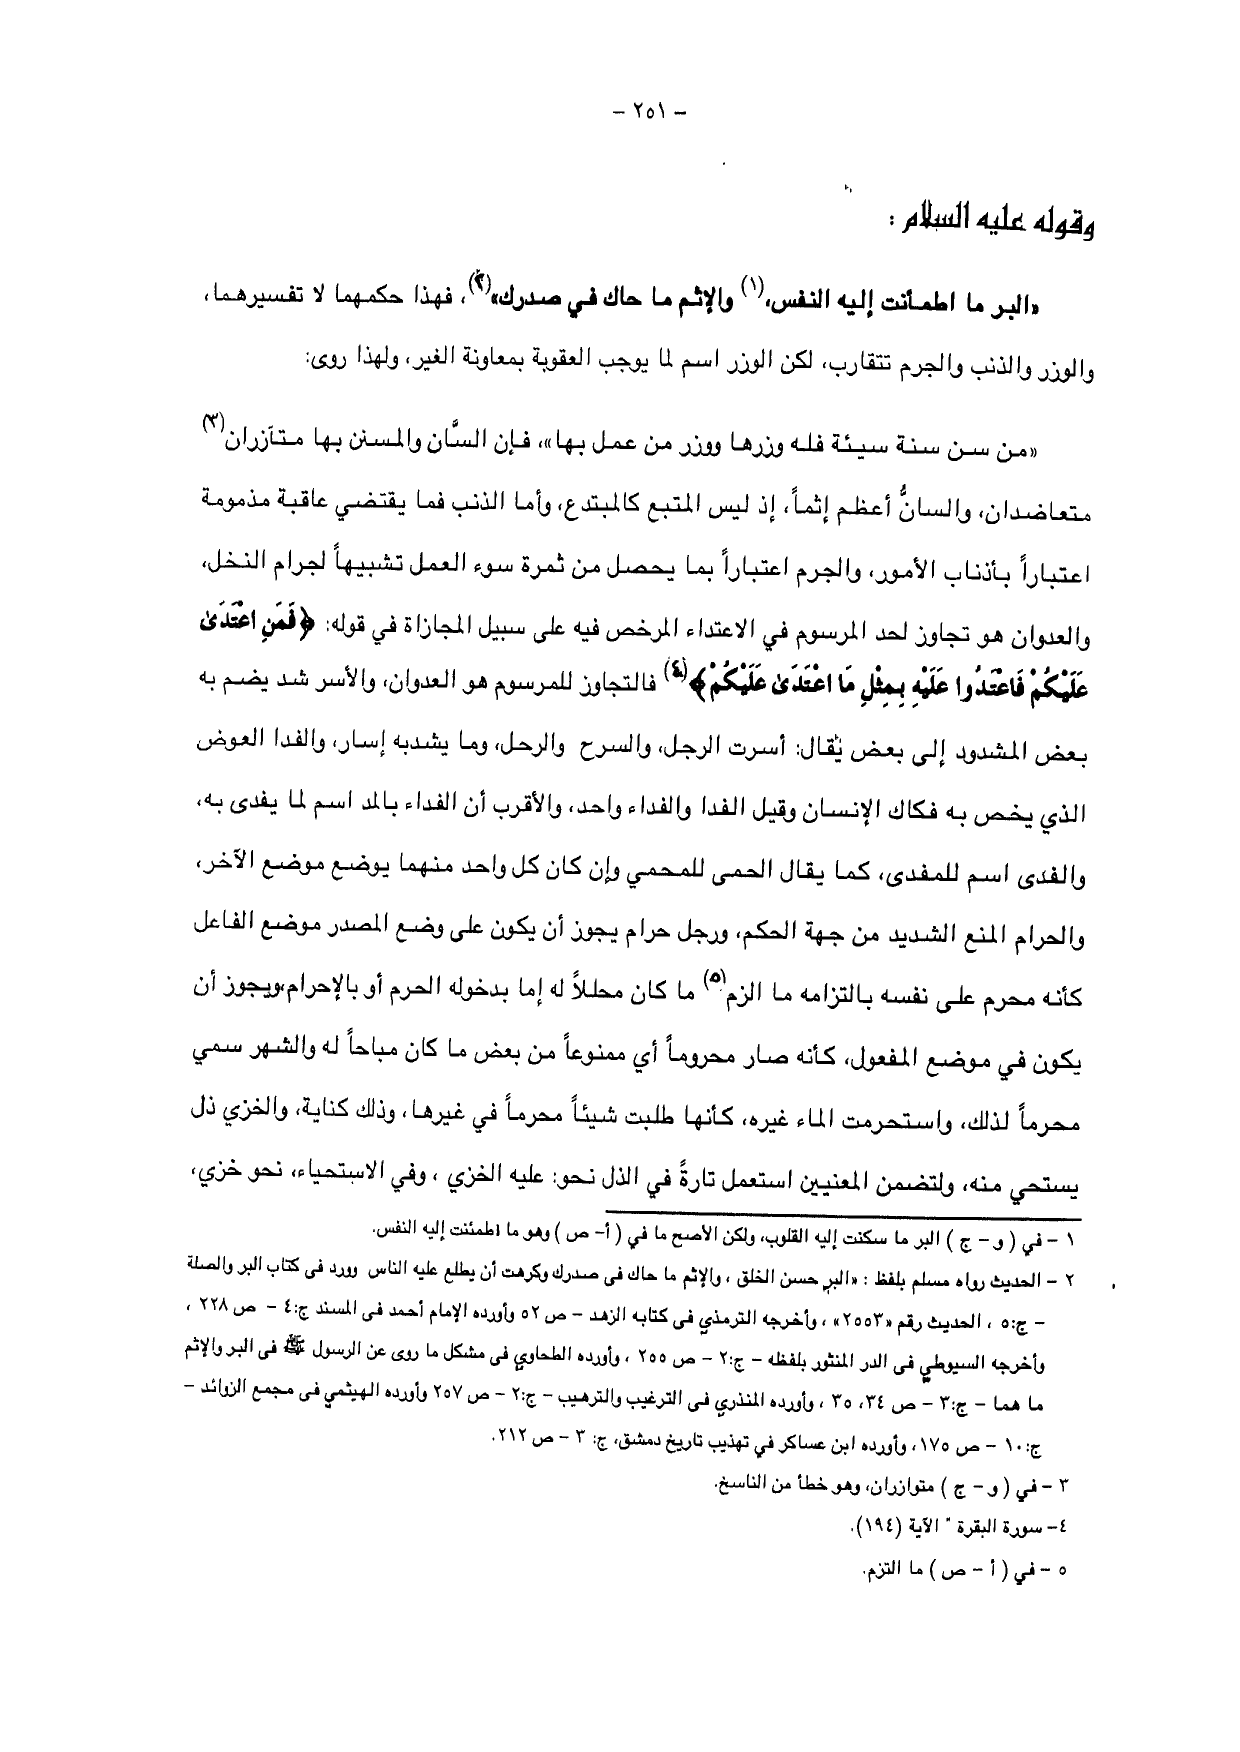 – ٢٥١ –
وقوله عليه السلام :
«البر ما اطمأنت إليه النفس،(١) والإثم ما حاك في صدرك»(٢)، فهذا حكمهما لا تفسيرهما،
والوزر والذنب والجرم تتقارب، لكن الوزر اسم لما يوجب العقوبة بمعاونة الغير، ولهذا روى:
«من سن سنة سيئة فله وزرها ووزر من عمل بها»، فإن السَّان والمسنن بها متآزران(٣)
متعاضدان، والسانُّ أعظم إثماً، إذ ليس المتبع كالمبتدع، وأما الذنب فما يقتضي عاقبة مذمومة
اعتباراً بأذناب الأمور، والجرم اعتباراً بما يحصل من ثمرة سوء العمل تشبيهاً لجرام النخل،
والعدوان هو تجاوز لحد المرسوم في الاعتداء المرخص فيه على سبيل المجازاة في قوله: ﴿فَمَنِ اعْتَدَىٰ
عَلَيْكُمْ فَاعْتَدُوا عَلَيْهِ بِمِثْلِ مَا اعْتَدَىٰ عَلَيْكُمْ﴾(٤) فالتجاوز للمرسوم هو العدوان، والأسر شد يضم به
بعض المشدود إلى بعض يُقال: أسرت الرجل، والسرح والرحل، وما يشدبه إسار، والفدا العوض
الذي يخص به فكاك الإنسان وقيل الفدا والفداء واحد، والأقرب أن الفداء بالمد اسم لما يفدى به،
والفدى اسم للمفدى، كما يقال الحمى للمحمي وإن كان كل واحد منهما يوضع موضع الآخر،
والحرام المنع الشديد من جهة الحكم، ورجل حرام يجوز أن يكون على وضع المصدر موضع الفاعل
كأنه محرم على نفسه بالتزامه ما الزم(٥) ما كان محللاً له إما بدخوله الحرم أو بالإحرام،ويجوز أن
يكون في موضع المفعول، كأنه صار محروماً أي ممنوعاً من بعض ما كان مباحاً له والشهر سمي
محرماً لذلك، واستحرمت الماء غيره، كأنها طلبت شيئاً محرماً في غيرها، وذلك كناية، والخزي ذل
يستحي منه، ولتضمن المعنيين استعمل تارةً في الذل نحو: عليه الخزي ، وفي الاستحياء، نحو خزي،
١ – في ( و – ج ) البر ما سكنت إليه القلوب، ولكن الأصح ما في ( أ– ص ) وهو ما اطمئنت إليه النفس.
٢ – الحديث رواه مسلم بلفظ : «البر حسن الخلق ، والإثم ما حاك فى صدرك وكرهت أن يطلع عليه الناس وورد فى كتاب البر والصلة
– ج:٥ ، الحديث رقم «٢٥٥٣» ، وأخرجه الترمذي فى كتابه الزهد – ص ٥٢ وأورده الإمام أحمد فى المسند ج:٤ – ص ٢٢٨ ،
وأخرجه السيوطي فى الدر المنثور بلفظه – ج:٢ – ص ٢٥٥ ، وأورده الطحاوي فى مشكل ما روى عن الرسول ﷺ فى البر والإثم
ما هما – ج:٣ – ص ٣٤، ٣٥ ، وأورده المنذري فى الترغيب والترهيب – ج:٢ – ص ٢٥٧ وأورده الهيثمي فى مجمع الزوائد –
ج:١٠ – ص ١٧٥، وأورده ابن عساكر في تهذيب تاريخ دمشق، ج: ٣ – ص ٢١٢.
٣ – في ( و – ج ) متوازران، وهو خطأ من الناسخ.
٤– سورة البقرة " الآية (١٩٤).
٥ – في ( أ – ص ) ما التزم.